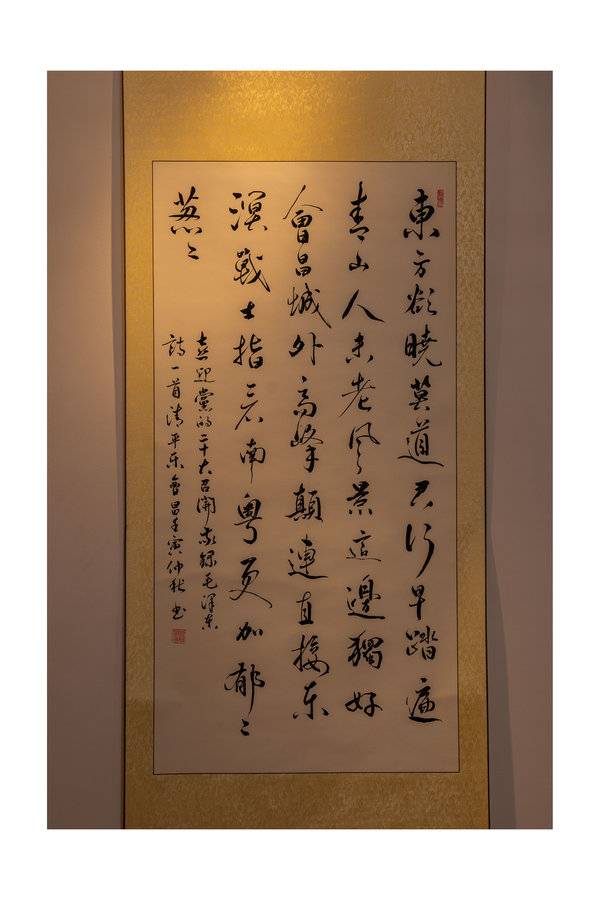 東方欲曉莫道君行早踏遍
青山人未老風景這邊獨好
會昌城外高峰顛連直接东
溟戰士指看南粵更加郁〻
葱〻
喜迎黨的二十大召開敬錄毛澤东
詩一首清平乐會昌壬寅仲秋书